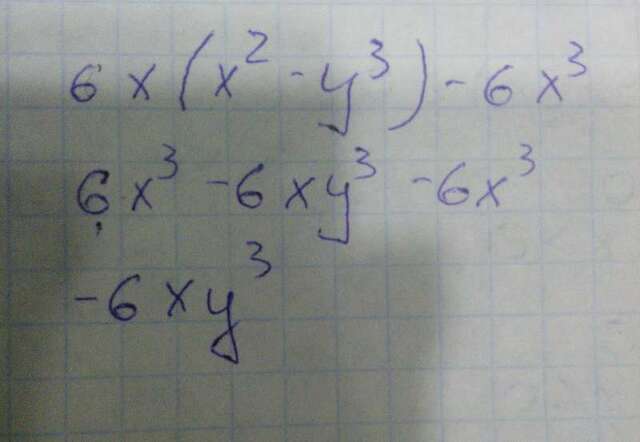 6x(x² - y³) - 6x³
6x³ - 6xy³ - 6x³
-6xy³